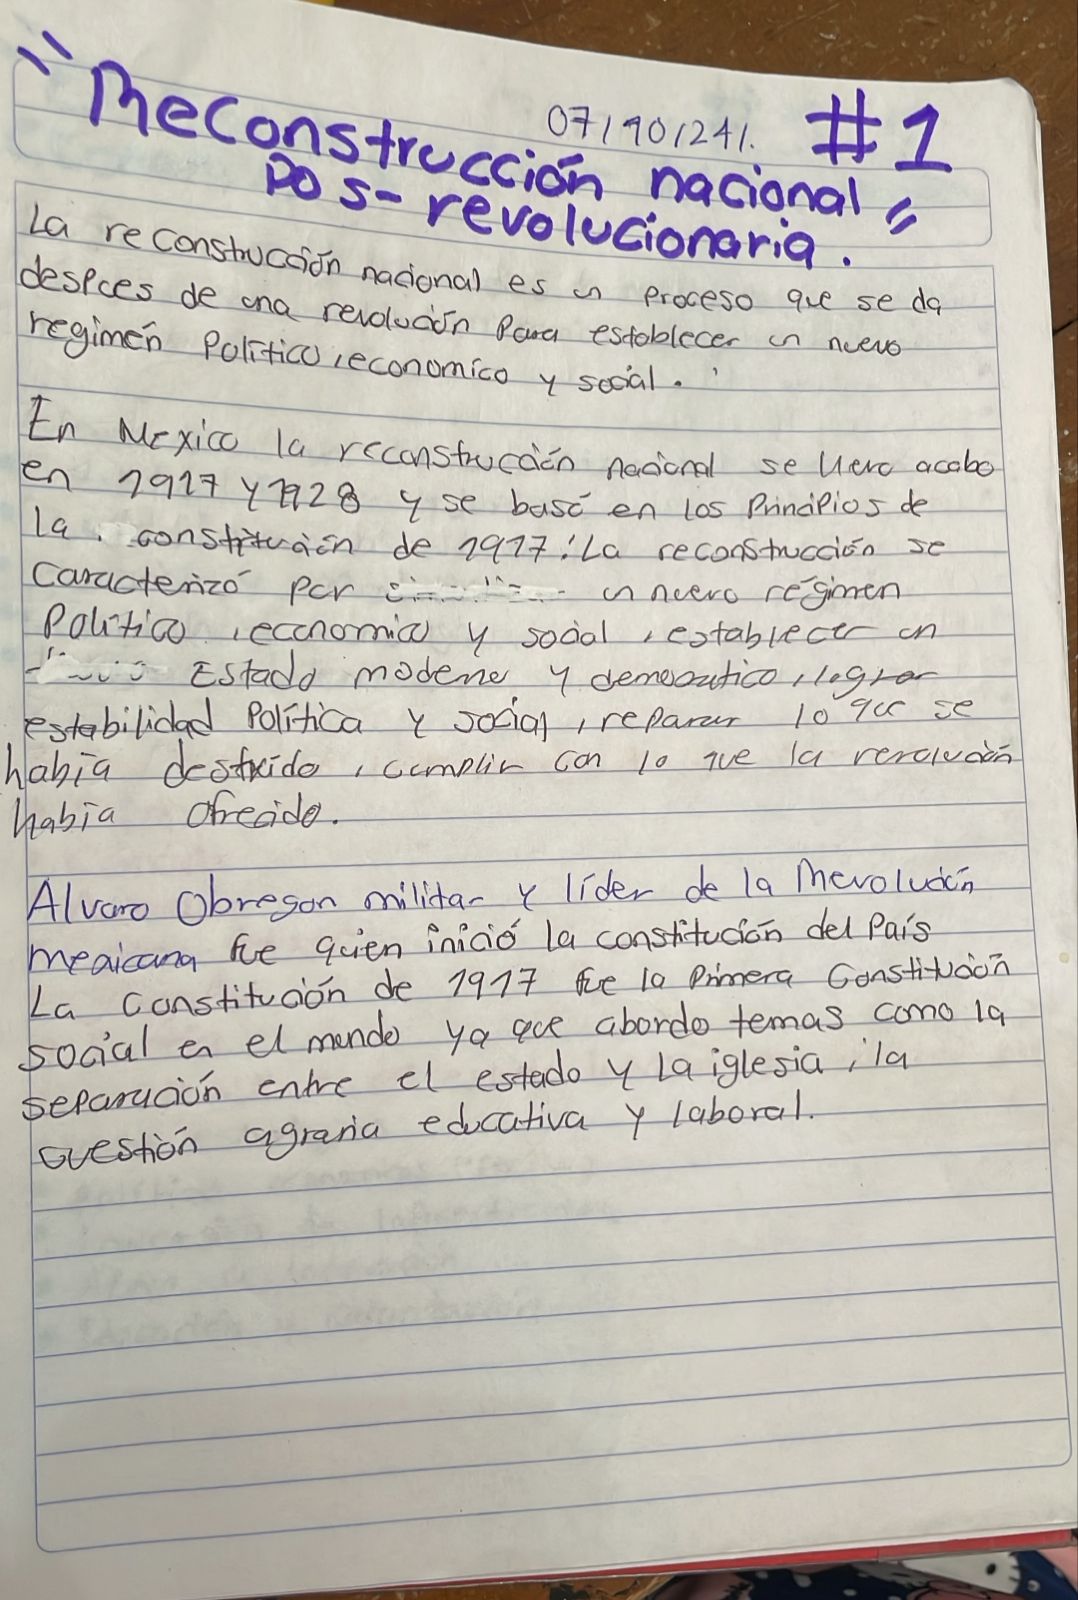 "Reconstrucción nacional
07/10/24/. #1
Pos-revolucionaria."
La reconstrucción nacional es un Proceso que se da
despues de una revolución Para establecer un nuevo
regimén Político, economíco y social.
En Mexico la reconstrucción nacional se llevo acabo
en 1917 y 1928 y se basó en los Principios de
la constitución de 1917. La reconstrucción se
caracterizó por un nuevo régimen
Político, economico y social, establecer un
Estado moderno y democratico, lograr
estabilidad Política y social, reparar lo que se
había destruido, cumplir con lo que la revolución
había ofrecido.
Alvaro Obregon militar y líder de la Revolución
mexicana fue quien inició la constitución del País
La Constitución de 1917 fue la Primera Constitución
social en el mundo ya que abordo temas como la
separación entre el estado y la iglesia, la
cuestión agraria educativa y laboral.